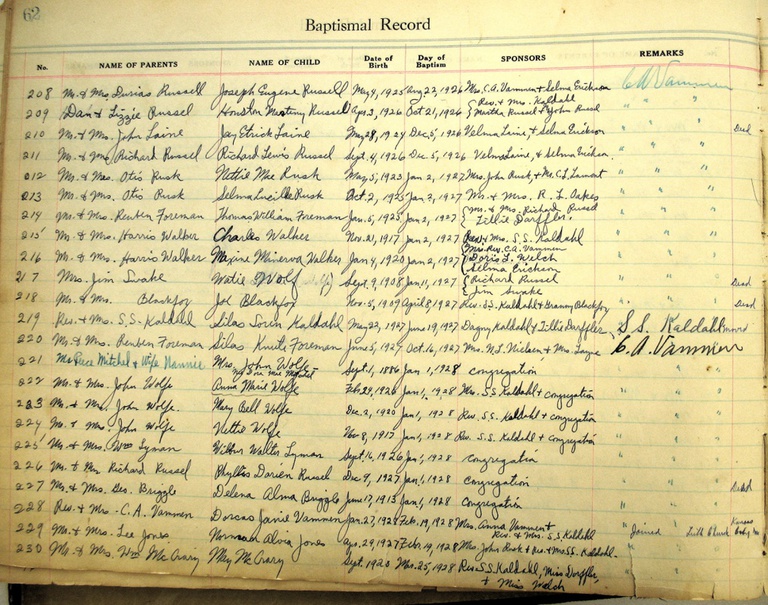 62
Baptismal Record
No. NAME OF PARENTS NAME OF CHILD Date of Birth Day of Baptism SPONSORS REMARKS
208 Mr. & Mrs. Durias Russell Joseph Eugene Russell May 4, 1925 Aug 22, 1926 Mrs. C.A. Vammen & Selma Erickson C A Vammen
209 Dan & Lizzie Russel Houston Russel Apr. 3, 1926 Oct 21, 1926 { Rev. & Mrs. Kaldahl Martha Russel & John Russel " " "
210 Mr. & Mrs. John Laine Jay Laine May 28, 1924 Dec. 5, 1926 Velma Laine, & Selma Erickson " " " Dead
211 Mr. & Mrs. Richard Russel Richard Lewis Russel Sept. 4, 1926 Dec. 5, 1926 Velma Laine, & Selma Erickson. " " "
212 Mr. & Mrs. Otis Rusk Nettie Mae Rusk May 5, 1923 Jan 2, 1927 Mrs. John Rusk, & Mrs. C.L. " " "
213 Mr. & Mrs. Otis Rusk Selma Lucille Rusk Oct. 2, 1925 Jan. 2, 1927 Mr. & Mrs. R. L. Oakes " " "
214 Mr. & Mrs. Reuben Foreman Thomas William Foreman Jan. 5, 1925 Jan 2, 1927 { Mr. & Mrs. Richard Russel Tillie Dorffler. " " "
215 Mr. & Mrs. Harris Walker Charles Walker Nov. 21, 1917 Jan. 2, 1927 { Rev. & Mrs. S.S. Kaldahl " " "
216 Mr. & Mrs. Harris Walker Maxine Minerva Walker Jan 4, 1920 Jan 2, 1927 { Mrs. Rev. C.A. Vammen Doris L. Welch Selma Erickson " " "
217 Mrs. Jim Snake Watie Wolf Sept. 9, 1908 Jan. 11, 1927 { Richard Russel Jim Snake " " " Dead
218 Mr. & Mrs. Blackfox Joe Blackfox Nov. 5, 1909 April 8, 1927 Rev. S.S. Kaldahl & Granny Blackfox " " " Dead
219 Rev. & Mrs. S.S. Kaldahl Silas Kaldahl May 22, 1927 June 19, 1927 Dagny Kaldahl & Tillie Dorffler S S. Kaldahl
220 Mr. & Mrs. Reuben Foreman Silas Knute Foreman June 5, 1927 Oct. 16, 1927 Mrs. N.L. Nielsen & Mrs. Layne C. A. Vammen
221 Mitchel & Wife Nannie Mrs. John Wolfe Sept. 1, 1886 Jan 1, 1928 Congregation " " "
222 Mr. & Mrs. John Wolfe Anna Marie Wolfe Feb. 29, 1926 Jan 1, 1928 Mrs. S.S. Kaldahl & Congregation " " "
223 Mr. & Mrs. John Wolfe. Mary Bell Wolfe Dec. 2, 1920 Jan 1, 1928 Rev. S.S. Kaldahl & Congregation " " "
224 Mr. & Mrs. John Wolfe Nettie Wolfe Nov. 8, 1917 Jan 1, 1928 Rev. S.S. Kaldahl & Congregation " " "
225 Mr. & Mrs. Wm Lyman Wilbur Walter Lyman Sept. 16, 1926 Jan 1, 1928 Congregation " " "
226 Mr. & Mrs. Richard Russel Phyllis Russel Dec 9, 1927 Jan 1, 1928 Congregation " " "
227 Mr. & Mrs. Geo. Briggle Delena Alma Briggle June 17, 1913 Jan 1, 1928 Congregation " " " Dead
228 Rev. & Mrs. C. A. Vammen Dorcas Janie Vammen Jan. 27, 1928 Feb. 19, 1928 Mrs. Anna Vammen & Rev. & Mrs. S.S. Kaldahl " " "
229 Mr. & Mrs. Lee Jones Norman Jones Apr. 29, 1927 Feb. 19, 1928 Mrs. John Rusk & Rev. & Mrs. S.S. Kaldahl. Joined Luth Church Kansas City Mo
230 Mr. & Mrs. Wm McCrary May McCrary Sept. 1920 Mar. 25, 1928 Rev. S.S. Kaldahl, Miss Dorffler, & Miss Welch " " "